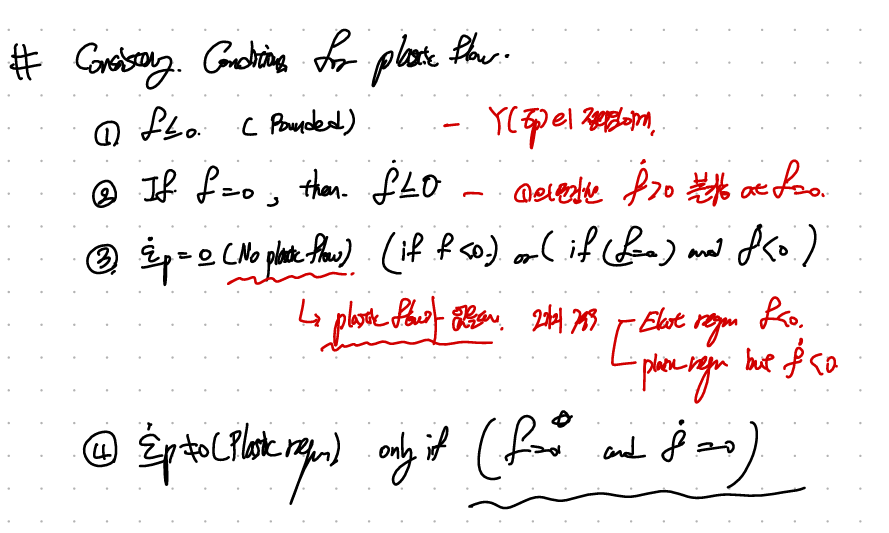 # Consistency Conditions for plastic flow.
① f≤0. (Bounded) - Y(ε̄p)의
② If f=0, then ḟ≤0 - ①의 ḟ>0 불능 at f=0.
③ ε̇p=0 (No plastic flow) (if f<0.) or (if (f=0) and ḟ<0)
↳ plastic flow가 2가지 경우 Elastic region f<0.
plastic region but ḟ<0
④ ε̇p≠0 (Plastic region) only if (f=0 and ḟ=0)